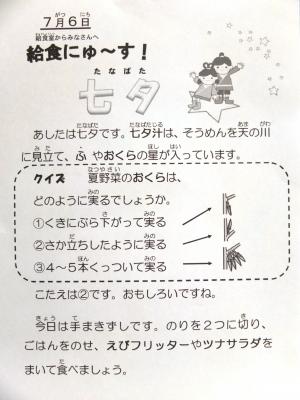 ７月６日
給食室からみなさんへ
給食にゅ～す！
七夕
あしたは七夕です。七夕汁は、そうめんを天の川
に見立て、ふやおくらの星が入っています。
クイズ　夏野菜のおくらは、
どのように実るでしょうか。
①くきにぶら下がって実る
②さか立ちしたように実る
③４～５本くっついて実る
こたえは②です。おもしろいですね。
今日は手まきずしです。のりを２つに切り、
ごはんをのせ、えびフリッターやツナサラダを
まいて食べましょう。